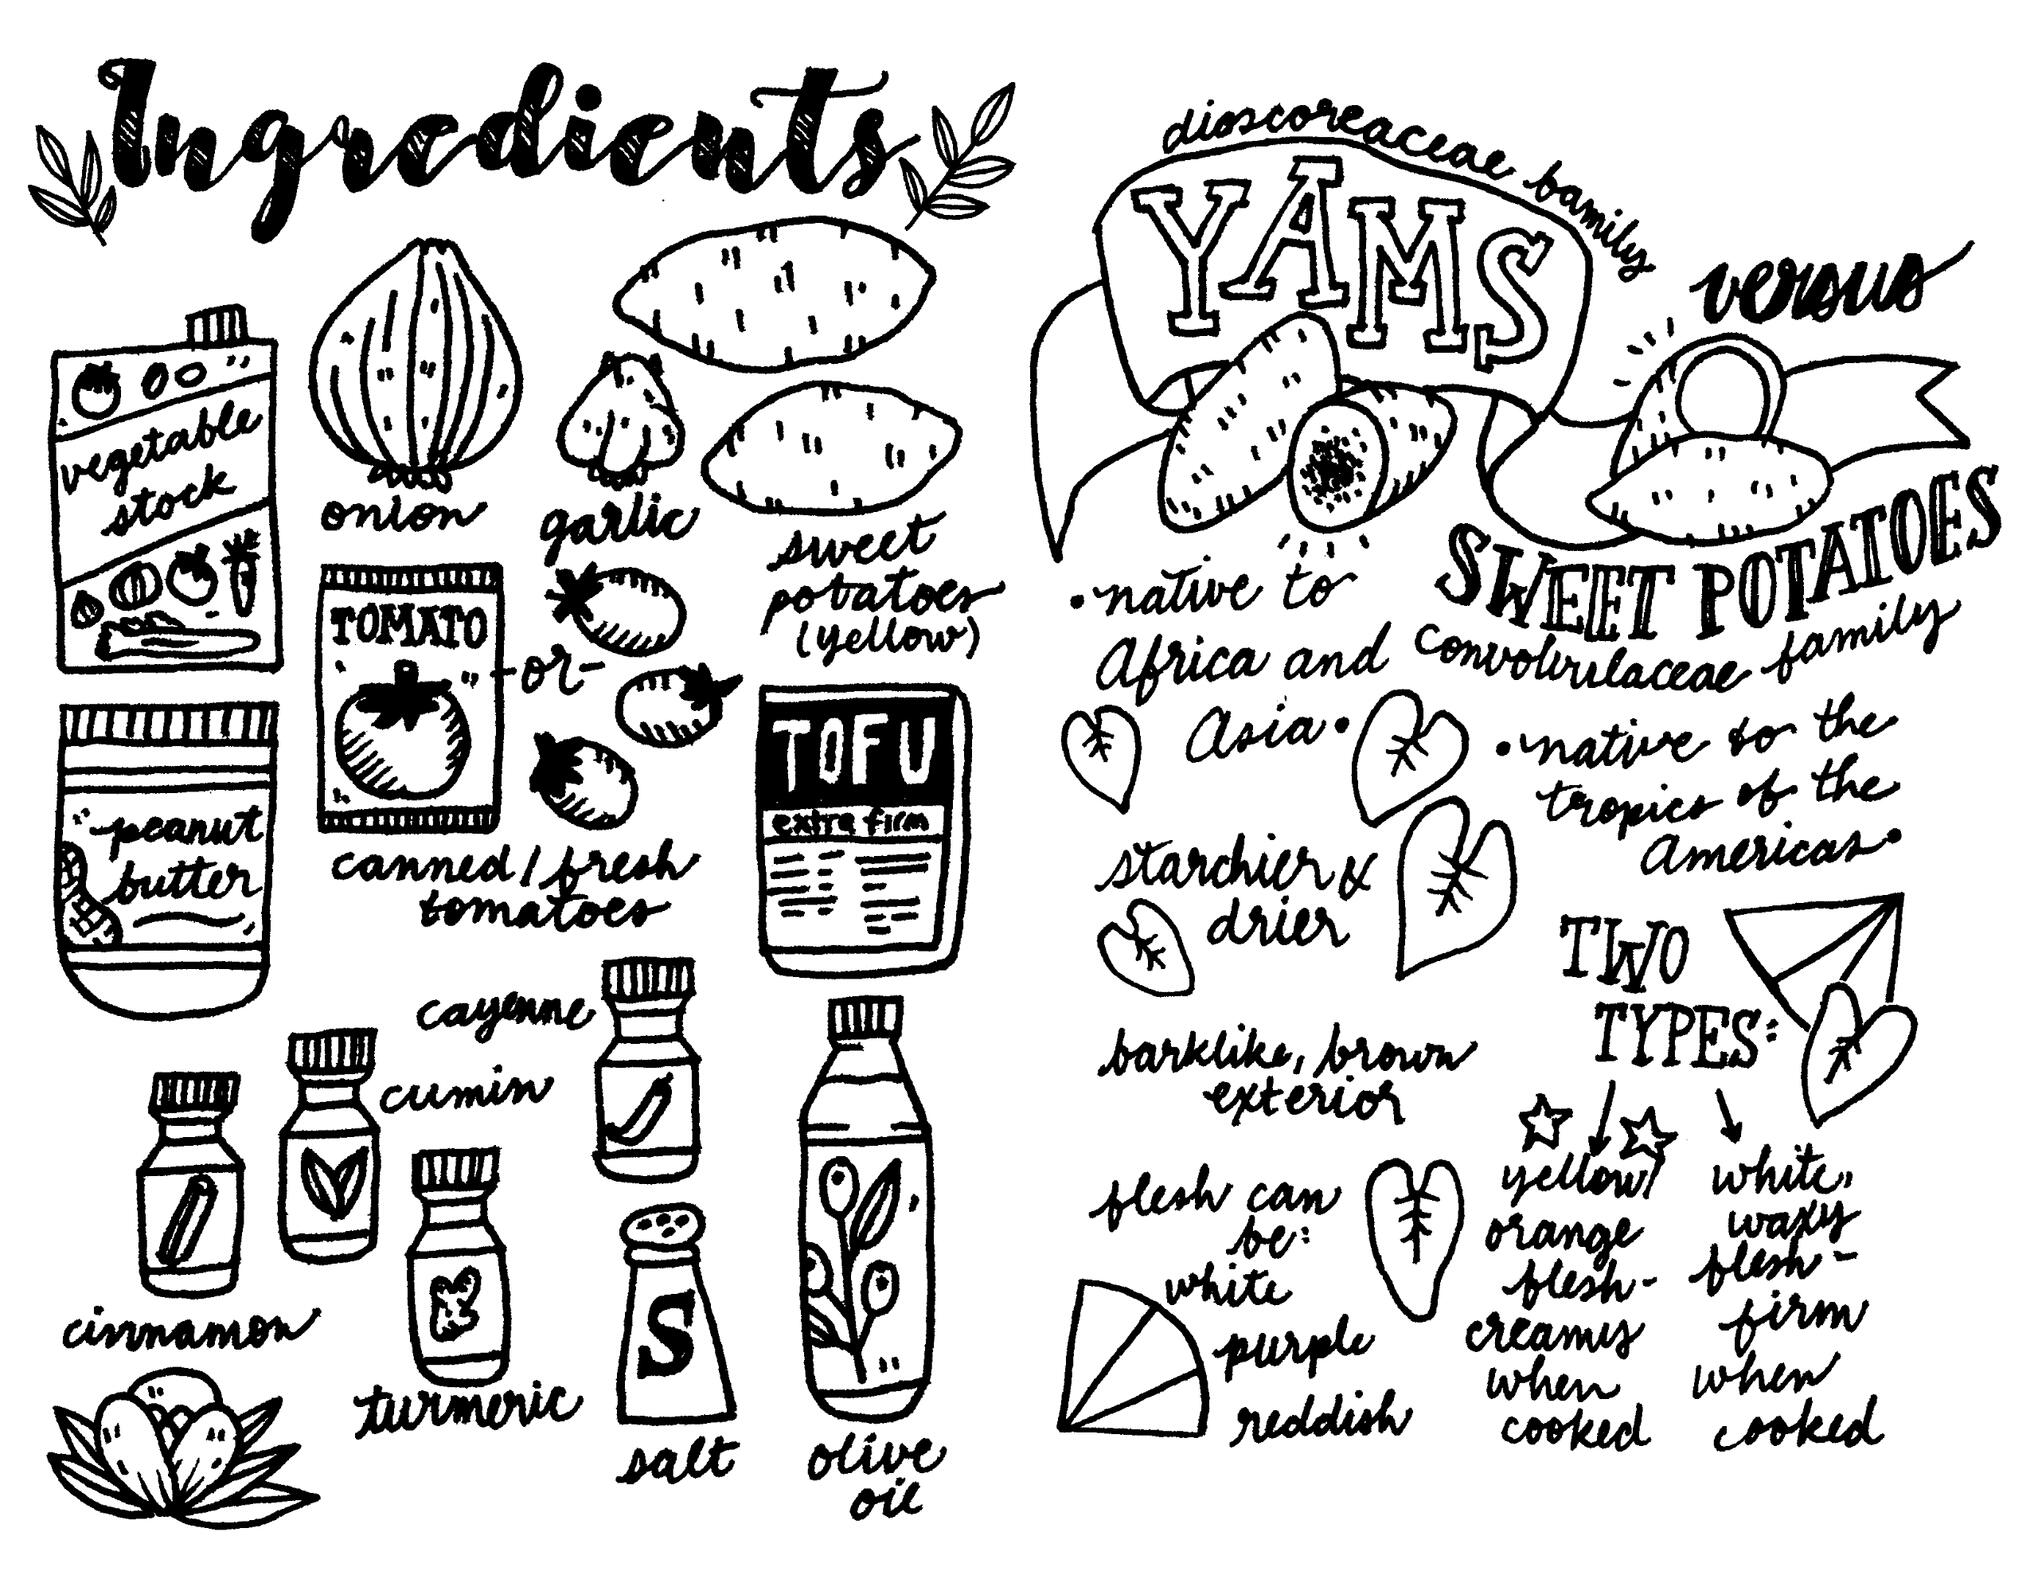 Ingredients
vegetable
stock
onion
garlic
sweet
potatoes
(yellow)
peanut
butter
TOMATO
-or-
canned/fresh
tomatoes
TOFU
extra firm
cayenne
cumin
cinnamon
turmeric
S
salt
olive
oil
dioscoreaceae family
YAMS
versus
SWEET POTATOES
convolvulaceae family
•native to
Africa and
Asia•
starchier &
drier
barklike, brown
exterior
flesh can
be:
white
purple
reddish
•native to the
tropics of the
Americas•
TWO
TYPES:
yellow/
orange
flesh-
creamy
when
cooked
white,
waxy
flesh-
firm
when
cooked